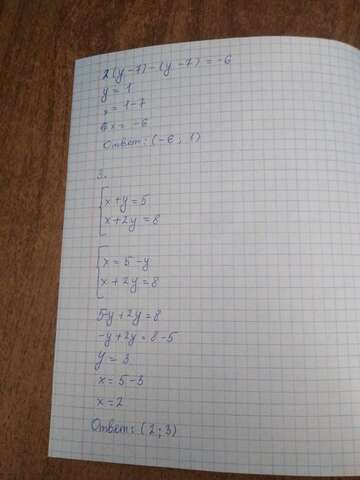 2(y-7)-(y-7)=-6
y=1
x=1-7
x=-6
Ответ: (-6; 1)
3.
x+y=5
x+2y=8
x=5-y
x+2y=8
5-y+2y=8
-y+2y=8-5
y=3
x=5-3
x=2
Ответ: (2;3)